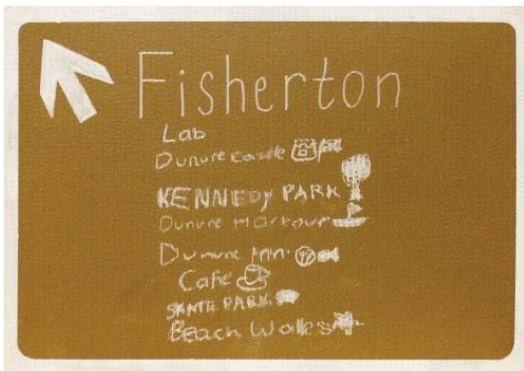 Fisherton
Lab
Dunure Castle
KENNEDY PARK
Dunure Harbour
Dunure Inn
Cafe
SKATE PARK
Beach Walks